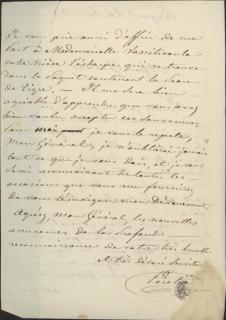 Je vous prie aussi d'offrir de ma
part à Mademoiselle
votre nièce l'écharpe qui se trouve
dans le paquet contenant la
de Tigre. — Il me sera bien
agréable d'apprendre que vous avez
bien voulu accepter ces souvenirs.
je vous le repète,
Mon Général, je n'oublierai jamais
tout ce que je vous dois, et je vous
serai reconnaissant de toutes les
occasions que vous me fournirez
de vous témoigner mon Dévouement.
Agréez, Mon Général, les nouvelles
assurances de la profonde
reconnaissance de votre très humble
et très dévoué Serviteur